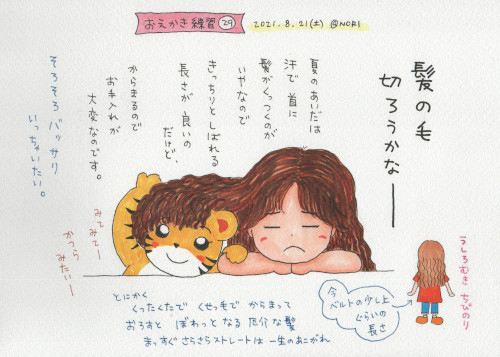 おえかき練習 29 2021.8.21(土) @NORI
髪の毛
切ろうかなー
夏のあいだは
汗で 首に
髪がくっつくのが
いやなので
きっちりとしばれる
長さが 良いの
だけど、
からまるので
お手入れが
大変なのです。
そろそろ バッサリ
いっちゃいたい。
みてみてー
かつら
みたいー
うしろむき ちびのり
今
ベルトの少し上
ぐらいの
長さ
とにかく
くったくたで くせっ毛で からまって
おろすと ぼわっと なる 厄介な髪
まっすぐ さらさらストレートは 一生のあこがれ